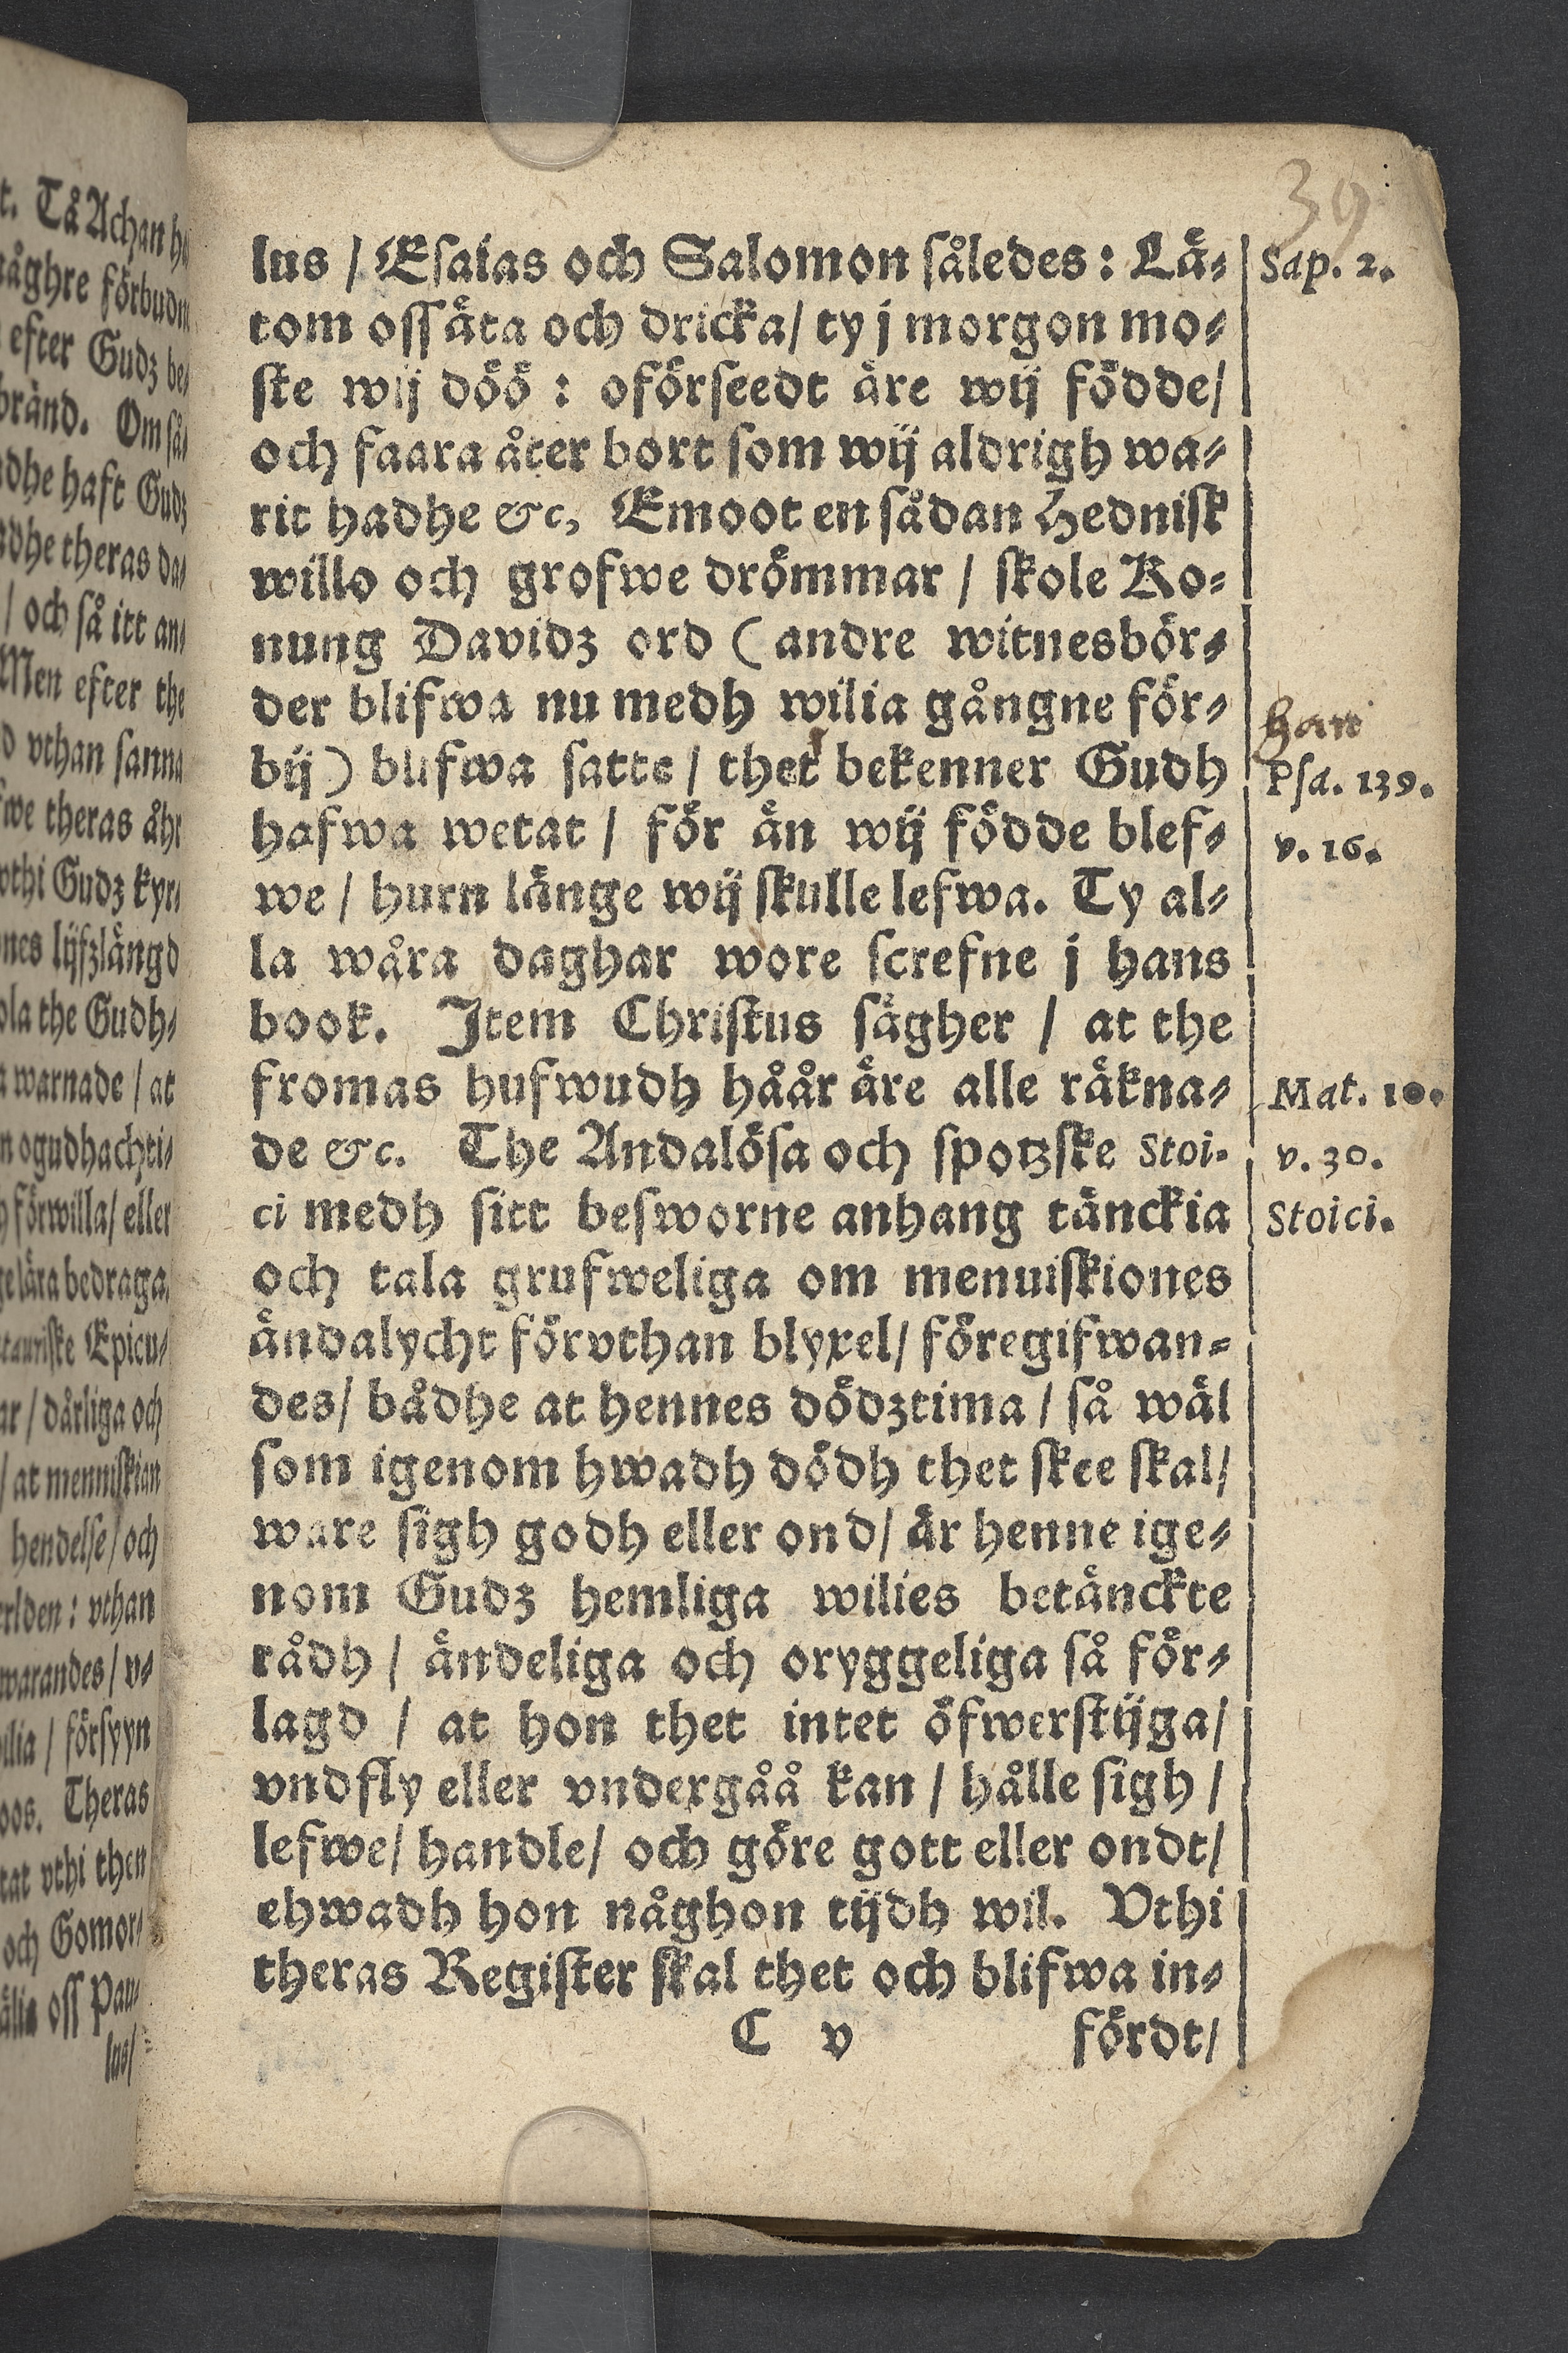 39
lus / Esaias och Salomon således: Lä-
tom oss äta och dricka/ ty j morgon mo-
ste wij döö : oförseedt äre wij födde/
och faara åter bort som wij aldrigh wa-
rit hadhe &c, Emoot en sådan Hednisk
willo och grofwe drömmar / skole Ko-
nung Davidz ord ( andre witnesbör-
der blifwa nu medh wilia gångne för-
bij) blifwa satte / thet bekenner Gudh
hafwa wetat / för än wij födde blef-
we / hurn länge wij skulle lefwa. Ty al-
la wåra daghar wore screfne j hans
book. Item Christus sägher / at the
fromas hufwudh håår äre alle räkna-
de &c. The Andalösa och spotzske Stoi-
ci medh sitt besworne anhang tänckia
och tala grufweliga om menuiskiones
ändalycht förvthan blyxel/ föregifwan-
des/ bådhe at hennes dödztima / så wäl
som igenom hwadh dödh thet skee skal/
ware sigh godh eller ond/ är henne ige-
nom Gudz hemliga wilies betänckte
rådh / ändeliga och oryggeliga så för-
lagd / at hon thet intet öfwerstijga/
vndfly eller vndergåå kan / hålle sigh /
lefwe/ handle/ och göre gott eller ondt/
ehwadh hon någhon tijdh wil. Vthi
theras Register skal thet och blifwa in-
C v fördt/
Sap. 2.
han
Psa. 139.
v. 16.
Mat. 10.
v. 30.
Stoici.
t. Tå Achan
åghre förbudn
efter Gudz be-
bränd. Om så-
dhe haft Gudz
dhe theras da-
/ och så itt an-
Men efter the
vthan sanna
we theras åhr
vthi Gudz kyr-
nes lijfzlängd
ola the Gudh-
warnade / at
n ogudhachti-
förwilla/ eller
ge lära bedraga
Epicu-
ar / dårliga och
/ at menniskian
hendelse / och
erlden: vthan
warandes / v-
ilia / försyyn
oos. Theras
tat vthi then
och Gomor-
älia oss Pau-
lus/